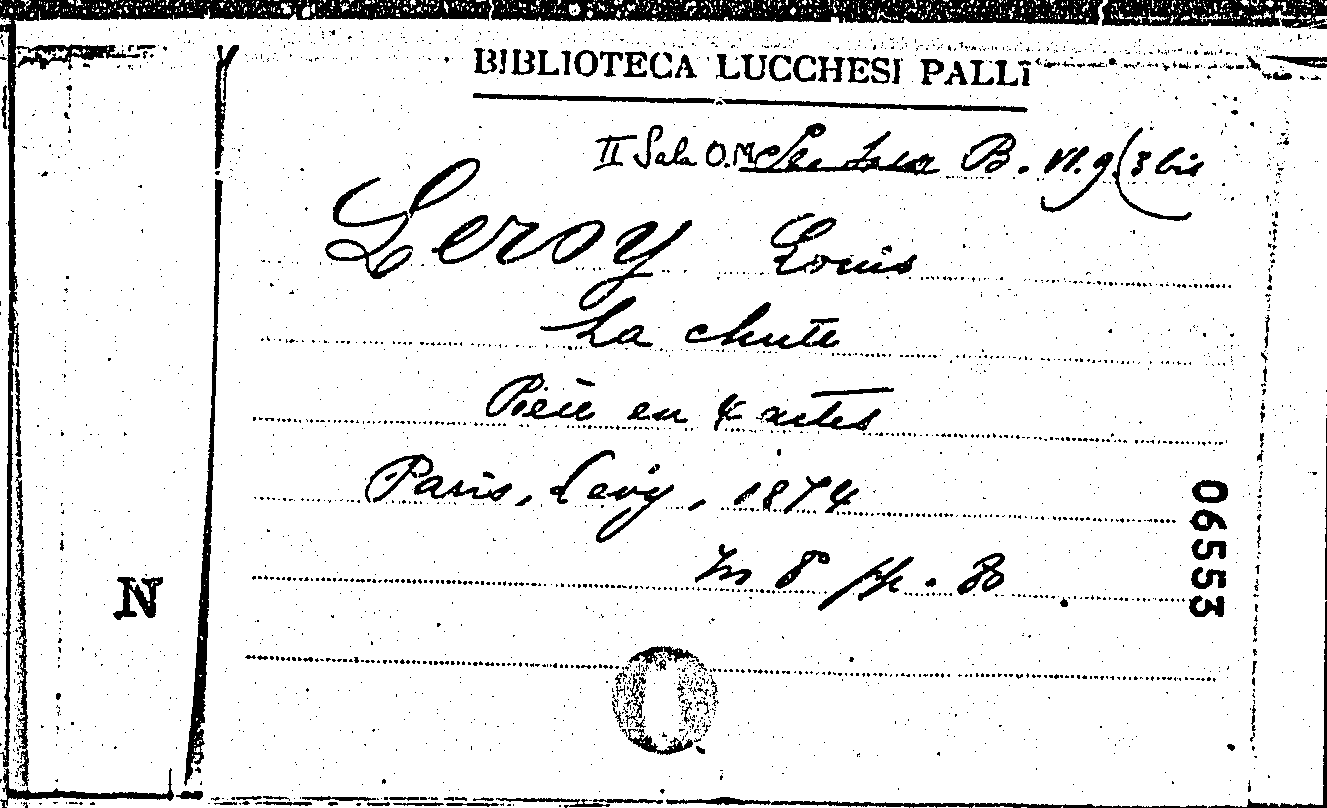 BIBLIOTECA LUCCHESI PALLI
II Sala O.M. B. VI. 9 (3 bis
Leroy Louis
La chute
Pièce en 4 actes
Paris, Levy, 1874
In 8° pp. 80
06553
N